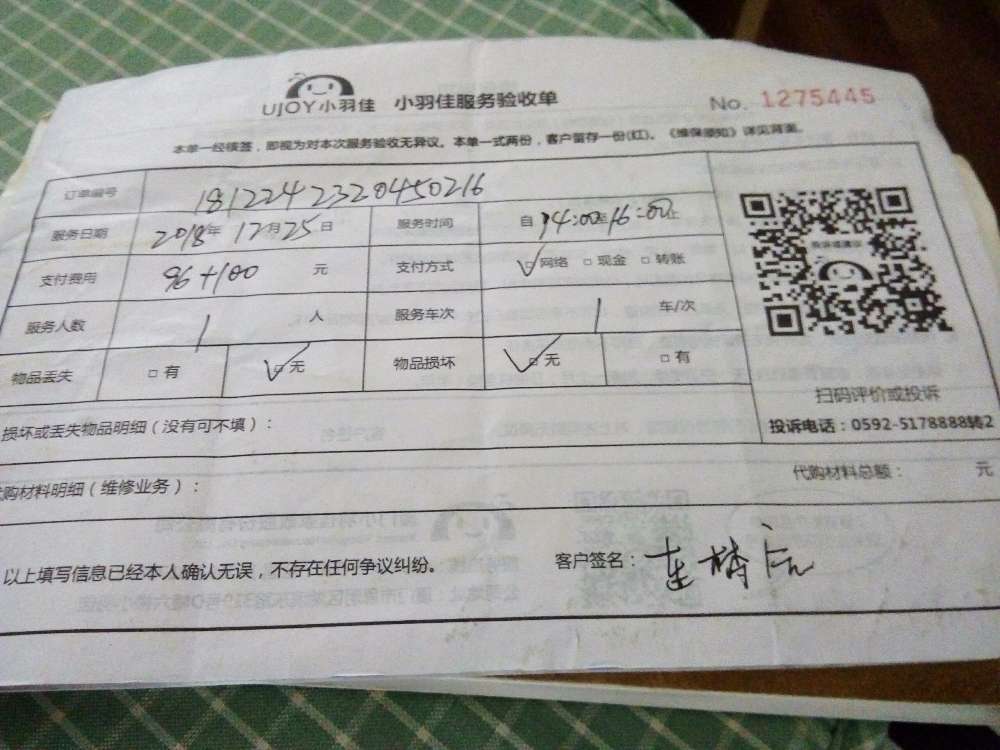 UJOY小羽佳 小羽佳服务验收单 No. 1275445
本单一经核签，即视为对本次服务验收无异议。本单一式两份，客户留存一份(红)。《维保须知》详见背面。
订单编号 1812242320450216
服务日期 2018年12月25日 服务时间 自14:00至16:00止
支付费用 96+100 元 支付方式 □网络 □现金 □转账
服务人数 1 人 服务车次 1 车/次
物品丢失 □有 □无 物品损坏 □无 □有
扫码评价或投诉
投诉电话：0592-5178888转2
损坏或丢失物品明细（没有可不填）：
代购材料明细（维修业务）： 代购材料总额： 元
以上填写信息已经本人确认无误，不存在任何争议纠纷。 客户签名：